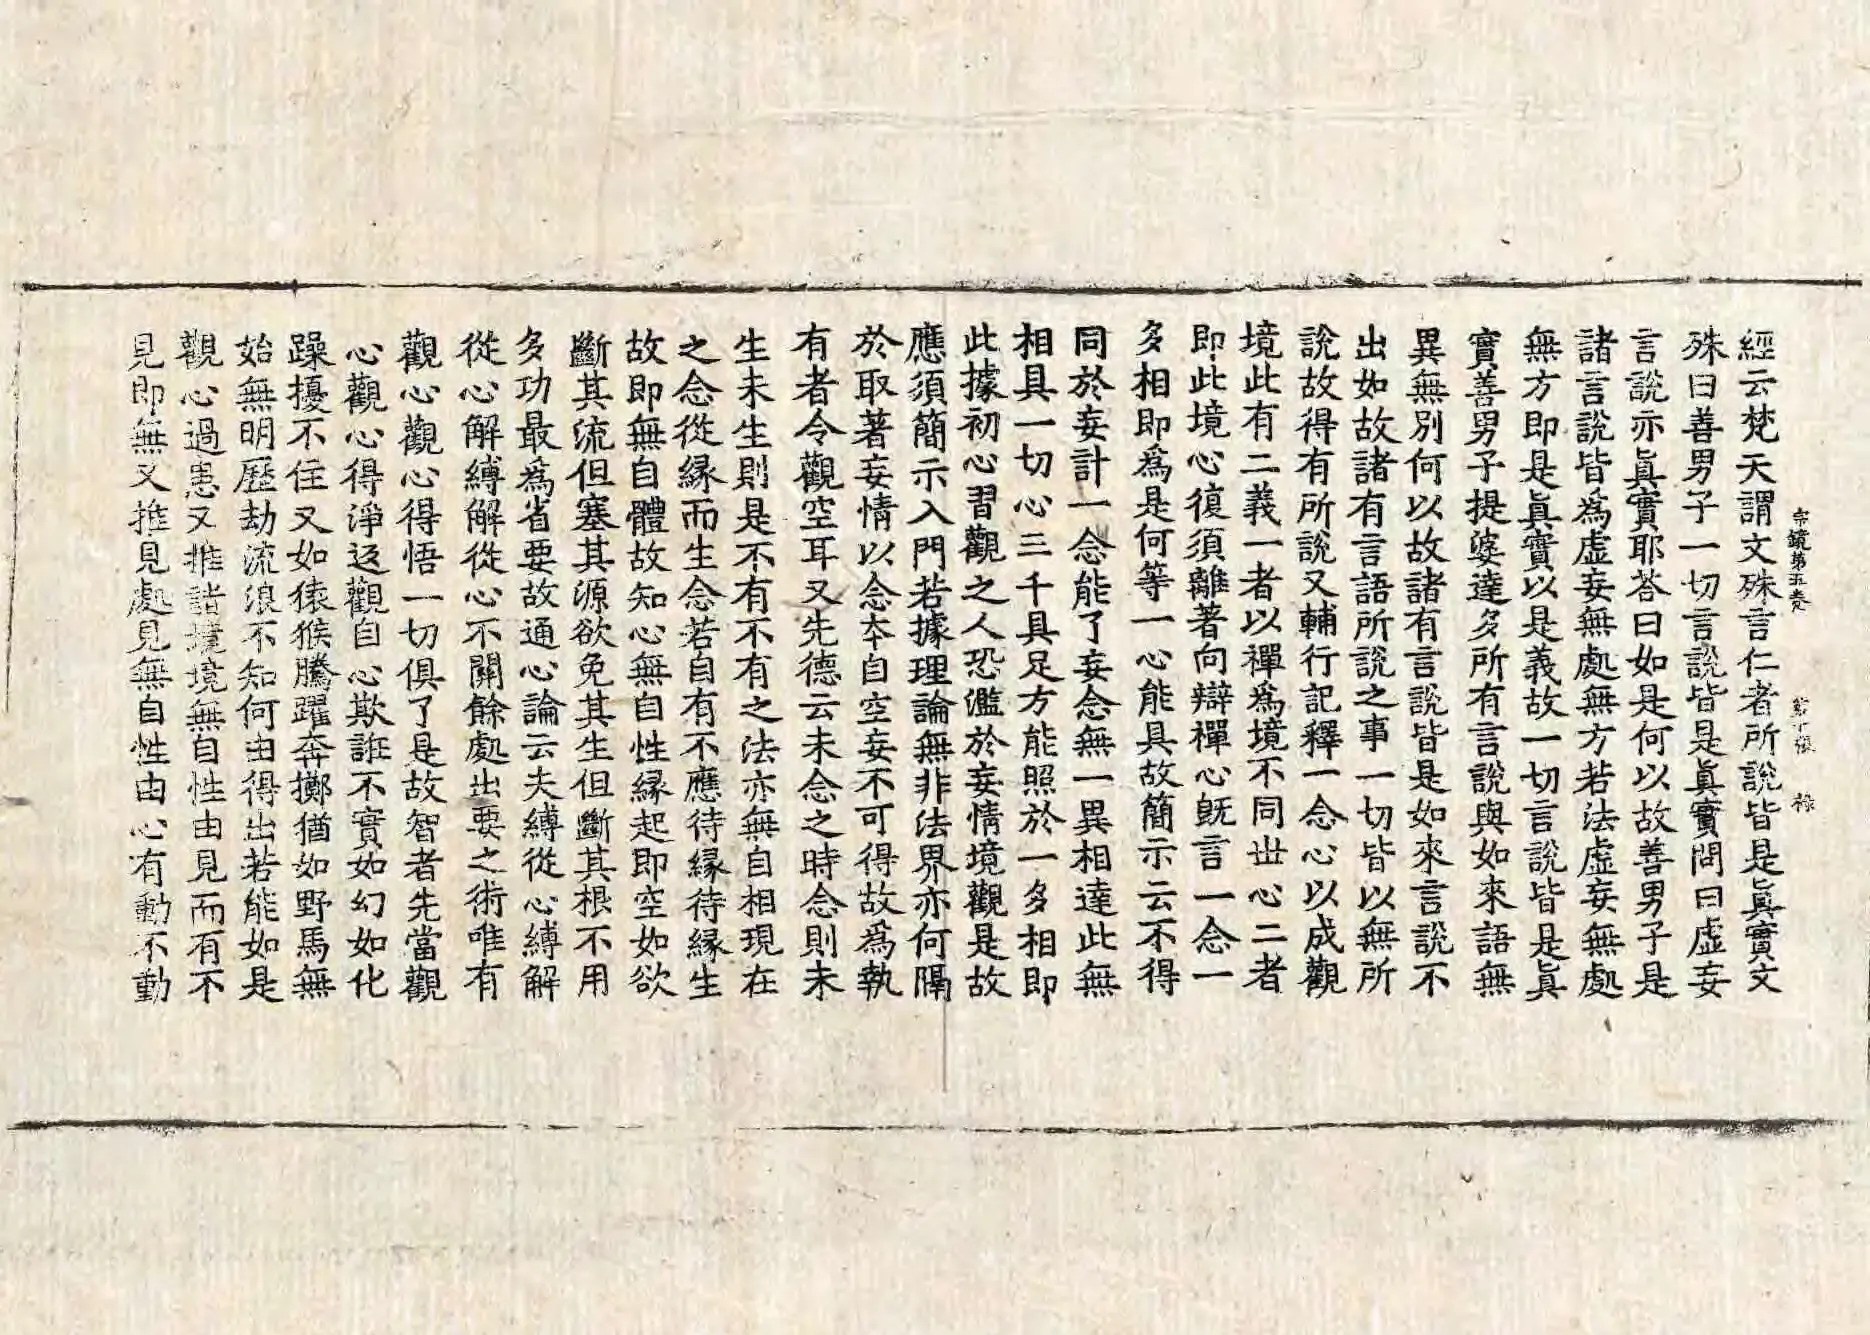 宗鏡第五卷 第十張 祿
經云梵天謂文殊言仁者所說皆是眞實文
殊曰善男子一切言說皆是眞實問曰虛妄
言說亦眞實耶荅曰如是何以故善男子是
諸言說皆爲虛妄無處無方若法虛妄無處
無方即是眞實以是義故一切言說皆是眞
實善男子提婆達多所有言說與如來語無
異無別何以故諸有言說皆是如來言說不
出如故諸有言語所說之事一切皆以無所
說故得有所說又輔行記釋一念心以成觀
境此有二義一者以禪爲境不同世心二者
即此境心復須離著向辯禪心旣言一念一
多相即爲是何等一心能具故簡示云不得
同於妄計一念能了妄念無一異相達此無
相具一切心三千具足方能照於一多相即
此據初心習觀之人恐濫於妄情境觀是故
應須簡示入門若據理論無非法界亦何隔
於取著妄情以念本自空妄不可得故爲執
有者令觀空耳又先德云未念之時念則未
生未生則是不有不有之法亦無自相現在
之念從緣而生念若自有不應待緣待緣生
故即無自體故知心無自性緣起即空如欲
斷其流但塞其源欲免其生但斷其根不用
多功最爲省要故通心論云夫縛從心縛解
從心解縛解從心不關餘處出要之術唯有
觀心觀心得悟一切俱了是故智者先當觀
心觀心得淨返觀自心欺誑不實如幻如化
躁擾不住又如猨猴騰躍奔擲猶如野馬無
始無明歷劫流浪不知何由得出若能如是
觀心過患又推諸境境無自性由見而有不
見即無又推見處見無自性由心有動不動